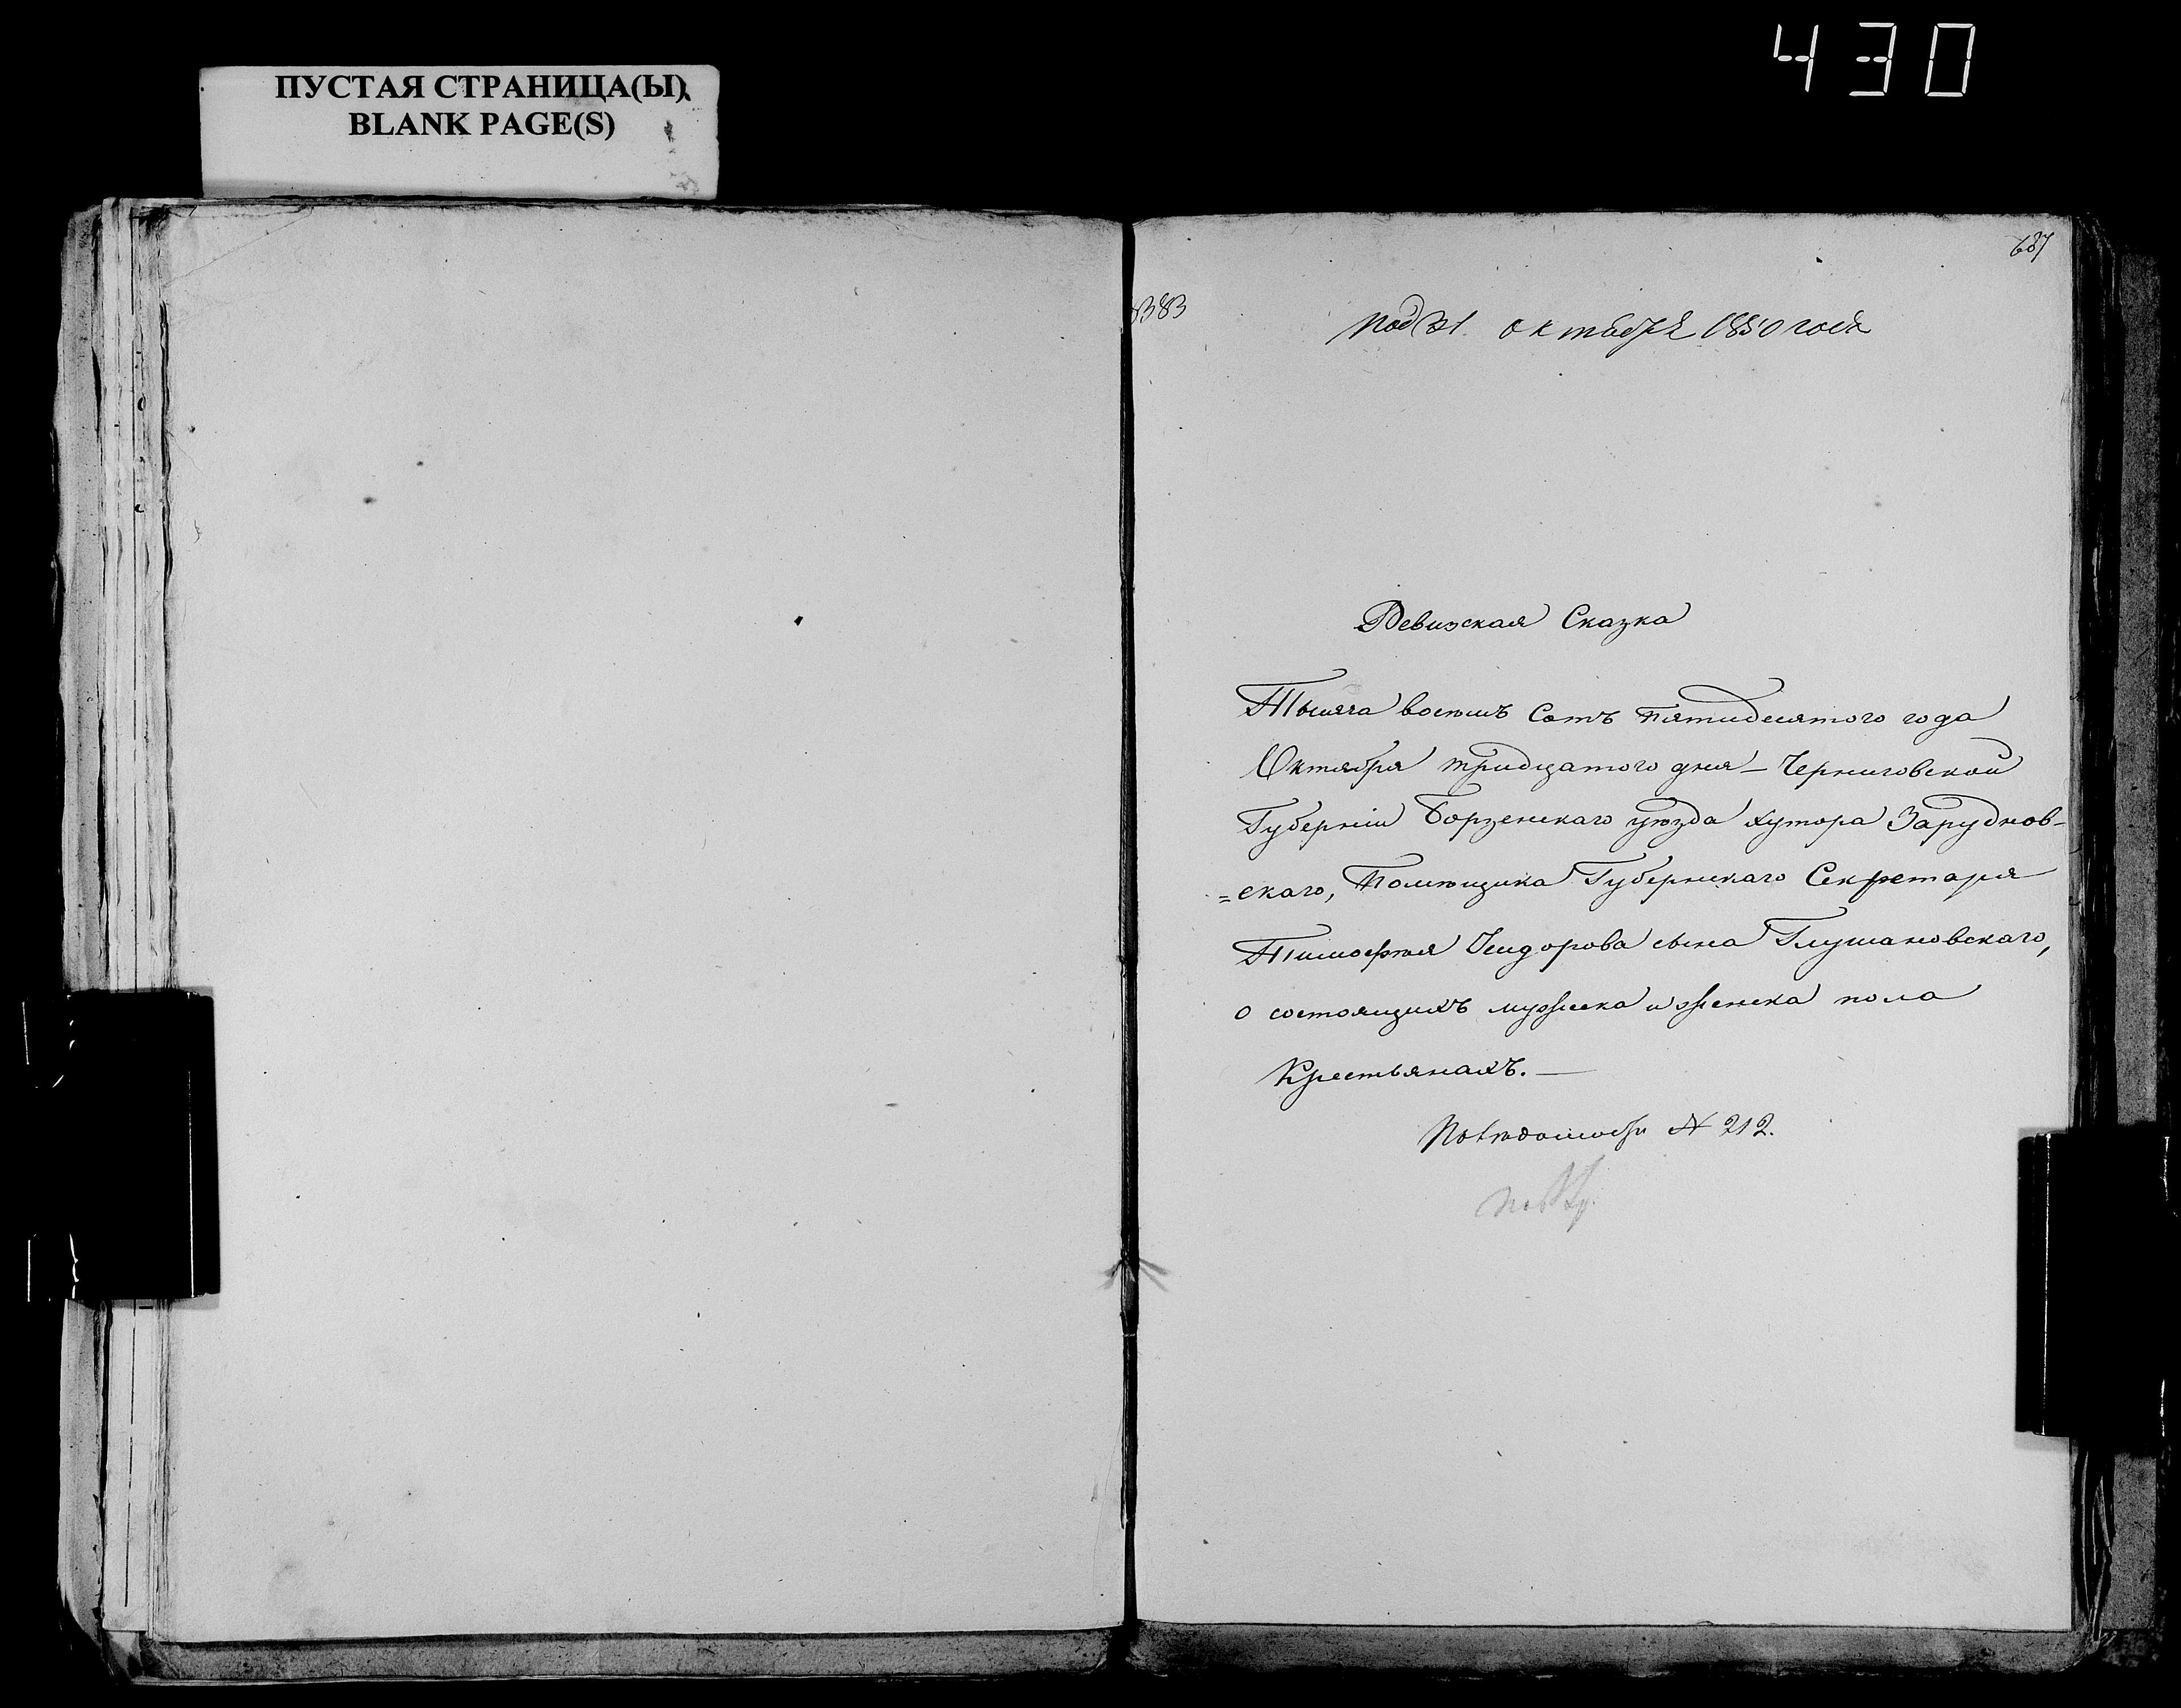 430
ПУСТАЯ СТРАНИЦА(Ы)
BLANK PAGE(S)
687
под 31. октября 1850 года
Ревизская Сказка
Тысяча восемь Сотъ пятидесятого года
Октября тридцатого дня – Черниговской
Губерніи Борзенскаго уѣзда хутора Заруднов-
=скаго, Помѣщика Губернскаго Секретаря
Тимофѣя Исидорова сына Глушановскаго,
о состоящихъ мужеска и женска пола
Крестьянахъ. —
По вѣдомости № 212.